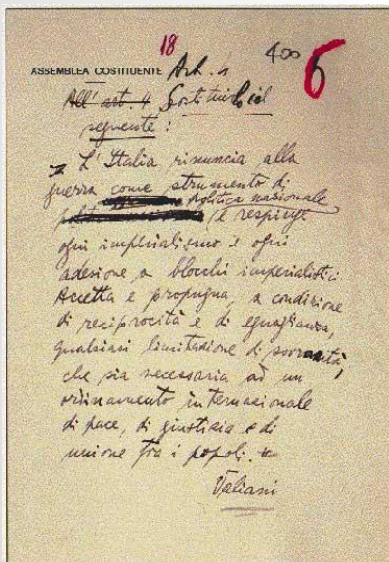 18
400 6
ASSEMBLEA COSTITUENTE Art. 4
All'art. 4 Sostituirlo col
seguente:
" L'Italia rinuncia alla
guerra come strumento di
politica nazionale
e respinge
ogni imperialismo e ogni
adesione a blocchi imperialistici.
Accetta e propugna, a condizione
di reciprocità e di eguaglianza,
qualsiasi limitazione di sovranità,
che sia necessaria ad un
ordinamento internazionale
di pace, di giustizia e di
unione fra i popoli. "
Valiani